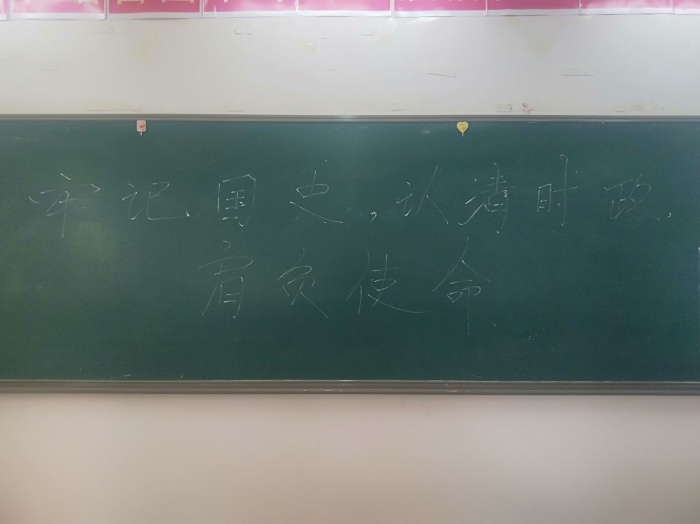 牢记国史,认清时政,
肩负使命